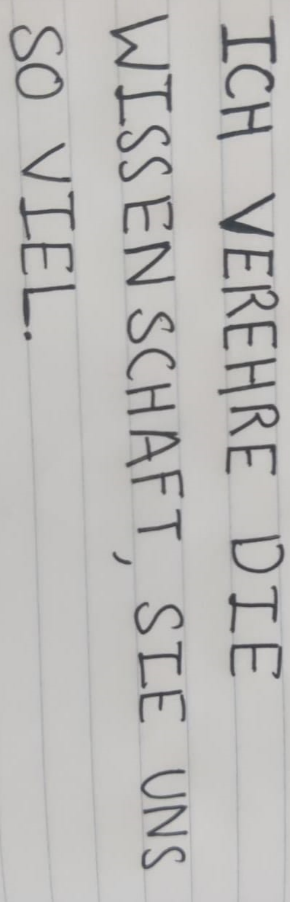 ICH VEREHRE DIE
WISSENSCHAFT, SIE UNS
SO VIEL.